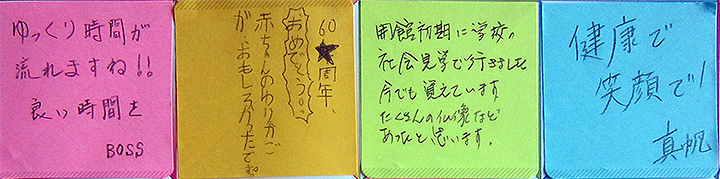 ゆっくり時間が
流れますね!!
良い時間を
BOSS
60★周年、
おめでとう!!
赤ちゃんのゆりかご
が、おもしろかったです。
開館初期に学校の
社会見学で行きました
今でも覚えています
たくさんの仏像など
あったと思います。
健康で
笑顔で!
真帆